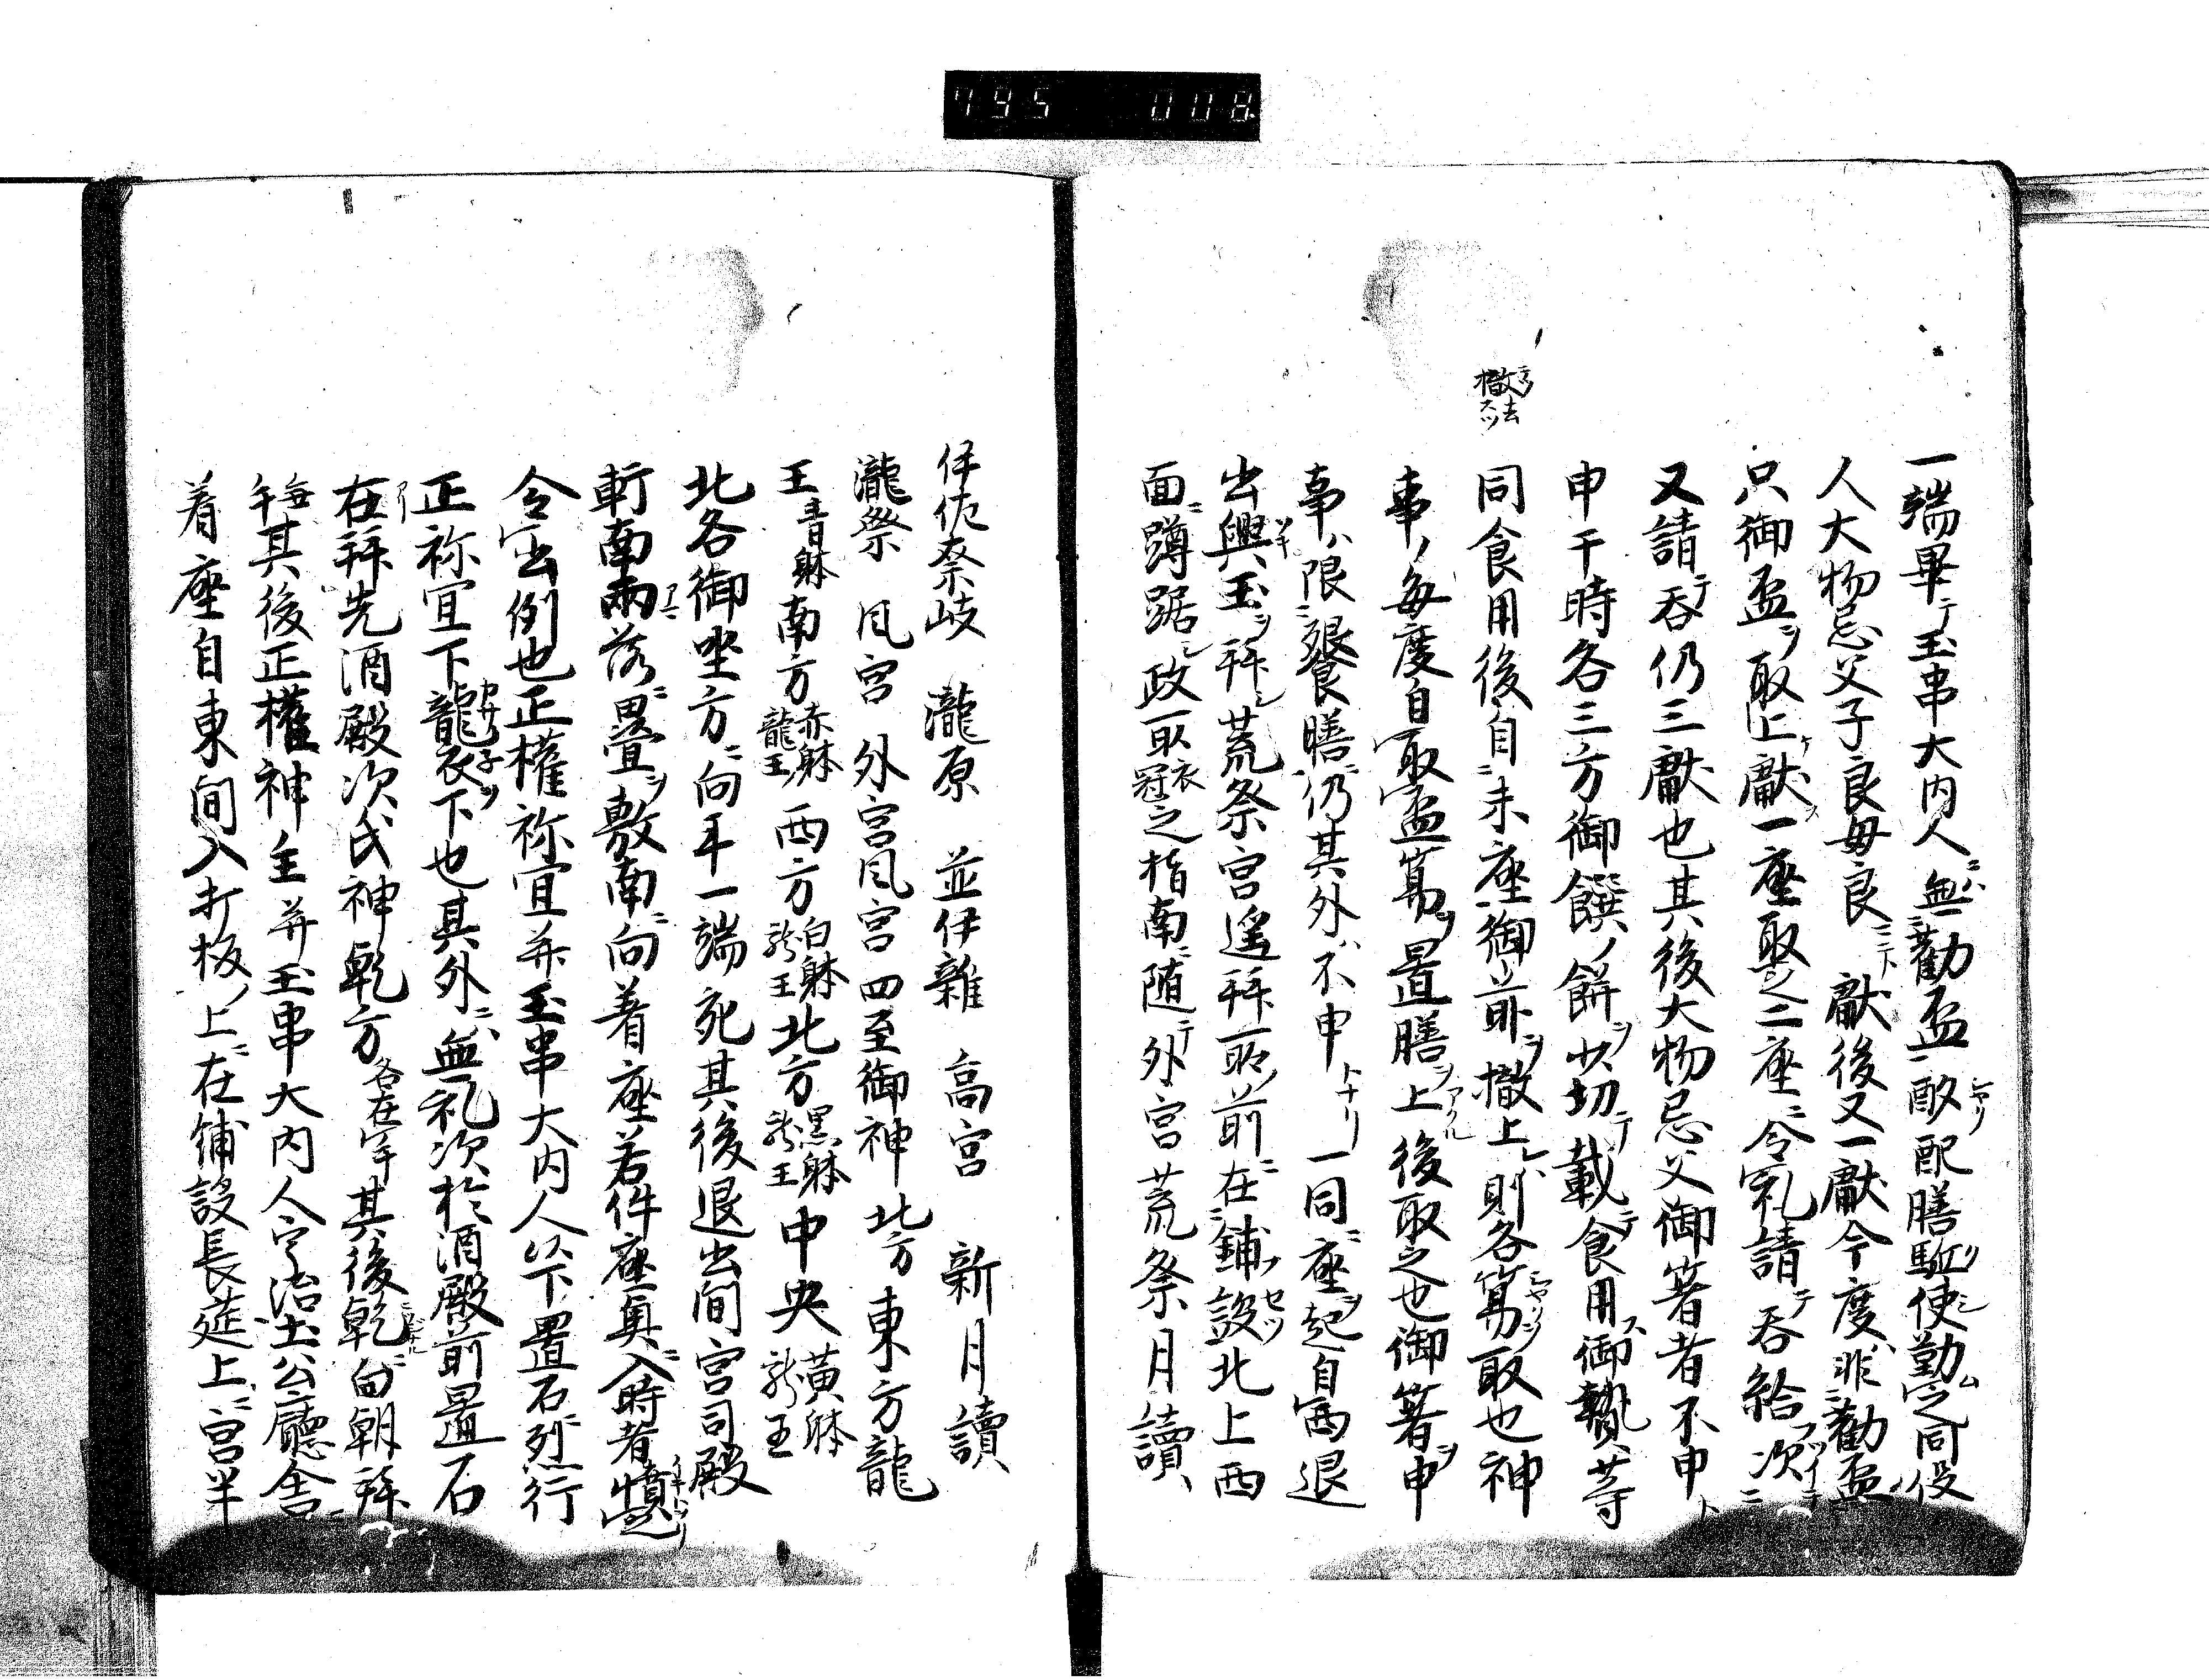 795 008
一端畢テ玉串大内人ニハ無勧盃一酘配膳駈使勤之同役
人大物忌父子良母良ニ下献後又一献今度ハ非勧盃
只御盃ヲ取上ケ献ス一座取之二座ニ令礼請テ呑給次ニ
又請テ呑仍三献也其後大物忌父御箸者不申ト
申于時各三方御饌ノ餅ヲ切テ載テ食用ス御贄等
同食用後自末座御前ヲ撤上則各笏取也神
撤去
事ノ毎度自取盃笏ヲ置膳上後取之也御箸ヲ申
事ハ限饗膳ニ仍其外ハ不申トナリ一同ニ座ヲ起自西退
出興玉ヲ拝シ荒祭宮遥拝所ノ前ニ在鋪設北上西
面ニ蹲踞シ政所衣冠之指南ニ随テ外宮荒祭月讀
伊佐奈岐 瀧原 並伊雜 高宮 新月讀
瀧祭 風宮 外宮風宮四至御神北方東方龍
王青躰南方赤躰龍王西方白躰龍王北方黒躰龍王中央黄躰龍王
北各御坐方ニ向手一端其後退出間宮司殿
軒南雨落ニ畳ヲ敷南ニ向着座若件座奥ニ入時者憤
令出例也正權祢宜并玉串大内人以下置石ニ列行
正祢宜下襲衣下也其外ニハ無礼次於酒殿前置石
在拝先酒殿次氏神乾方各在手其後乾ニ向朝拝
毎年其後正權神主并玉串大内人宇治土公廳舎ニ
着座自東間入打板ノ上ニ在鋪設長莚上ニ宮半